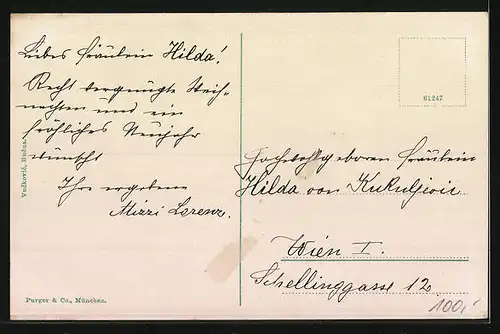 Liebes Fräulein Hilda!
Recht vergnügte Weih-
nachten und ein
fröhliches Neujahr
wünscht
Ihre ergebene
Mizzi Lorenz.
Hochwohlgeboren Fräulein
Hilda von Kukuljevic
Wien I.
Schellinggasse 12
61247
Vučković, Budua.
Purger & Co., München.
100,-